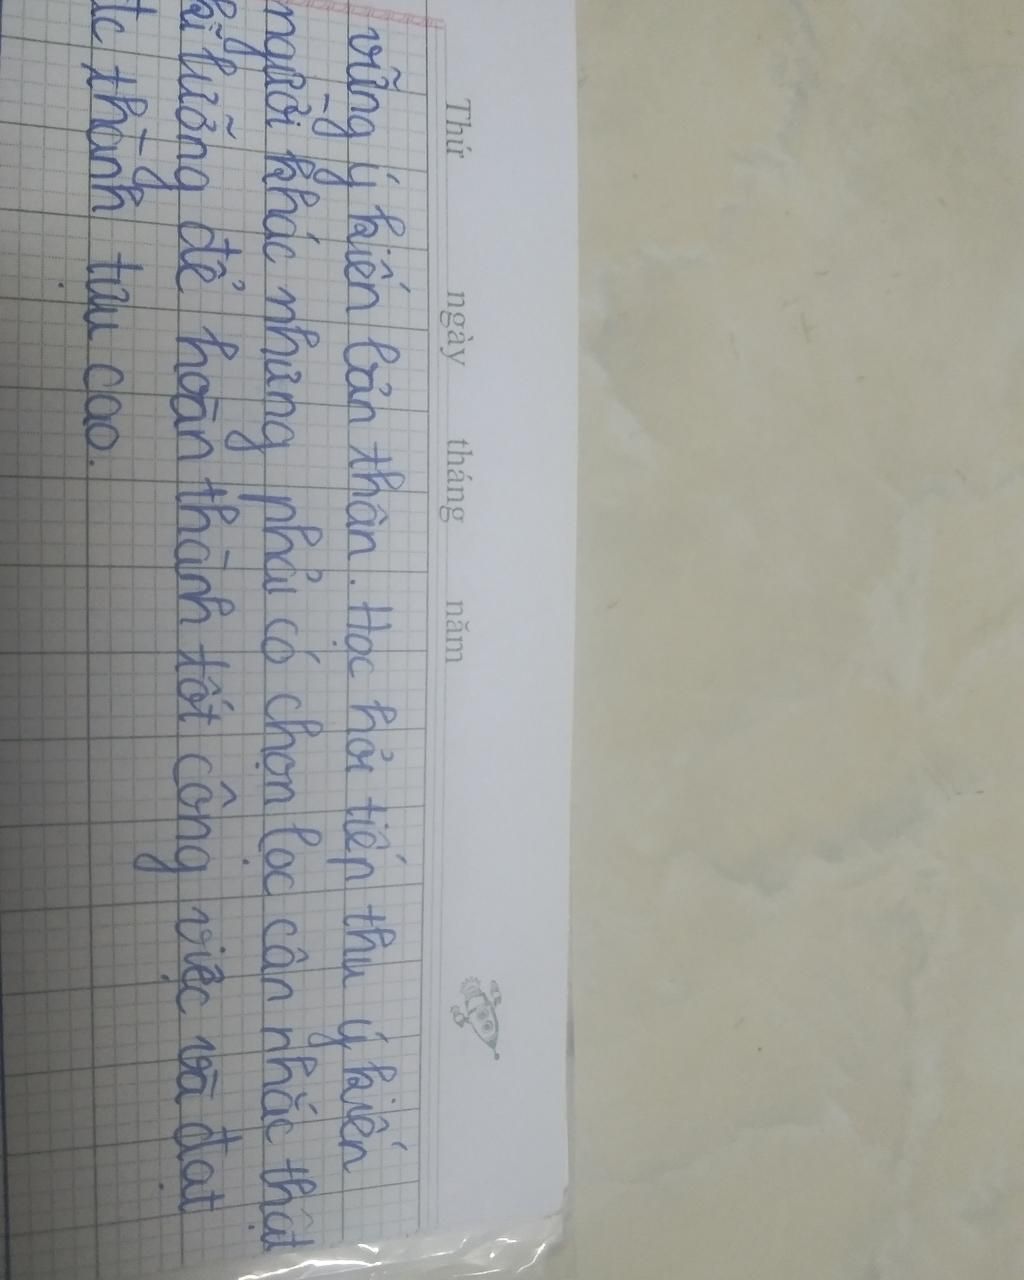 Thứ ngày tháng năm
vững ý kiến bản thân. Học hỏi tiếp thu ý kiến
người khác nhưng phải có chọn lọc cân nhắc thật
kĩ lưỡng để hoàn thành tốt công việc và đạt
thành tựu cao.